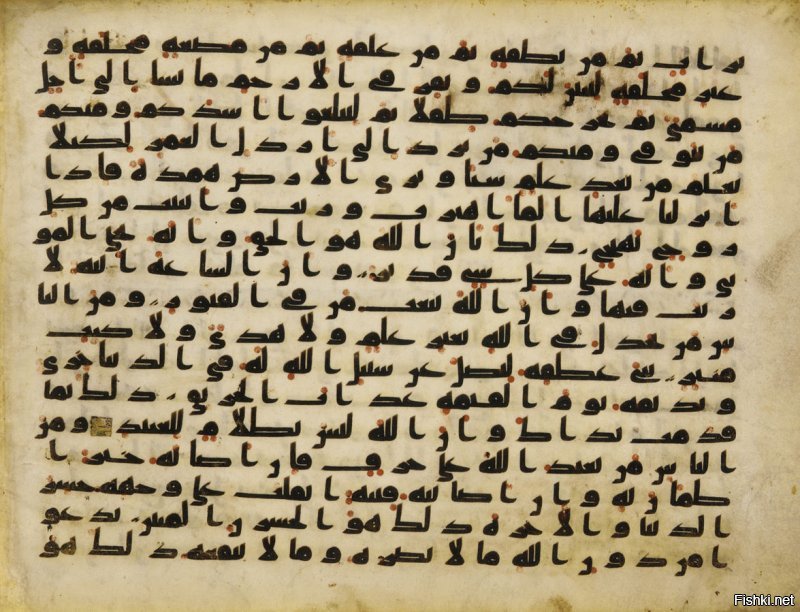 تراب ثم من نطفة ثم من علقة ثم من مضغة مخلقة و
غير مخلقة لنبين لكم ونقر في الارحم ما نشا الى اجل
مسمى ثم نخرجكم طفلا ثم لتبلغوا اشدكم ومنكم
من يتوفى ومنكم من يرد الى ارذل العمر لكيلا
يعلم من بعد علم شيا وترى الارض همدة فاذا
انزلنا عليها الما اهتزت وربت وانبتت من كل
زوج بهيج ذلك بان الله هو الحق وانه يحي المو
تى وانه على كل شي قدير وان الساعة اتية لا
ريب فيها وان الله يبعث من في القبور ومن النا
س من يجدل في الله بغير علم ولا هدى ولا كتب
منير ثني عطفه ليضل عن سبيل الله له في الدنيا خزى
ونذيقه يوم القيمة عذاب الحريق ذلك بما
قدمت يداك وان الله ليس بظلام للعبيد ومن
الناس من يعبد الله على حرف فان اصابه خير ا
طمان به وان اصابته فتنة انقلب على وجهه خسر
الدنيا والاخرة ذلك هو الخسرن المبين يدعو
ا من دون الله ما لا يضره وما لا ينفعه ذلك هو
Fishki.net